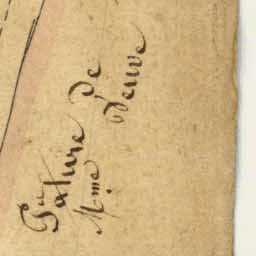 Pature de
Mme Deuve